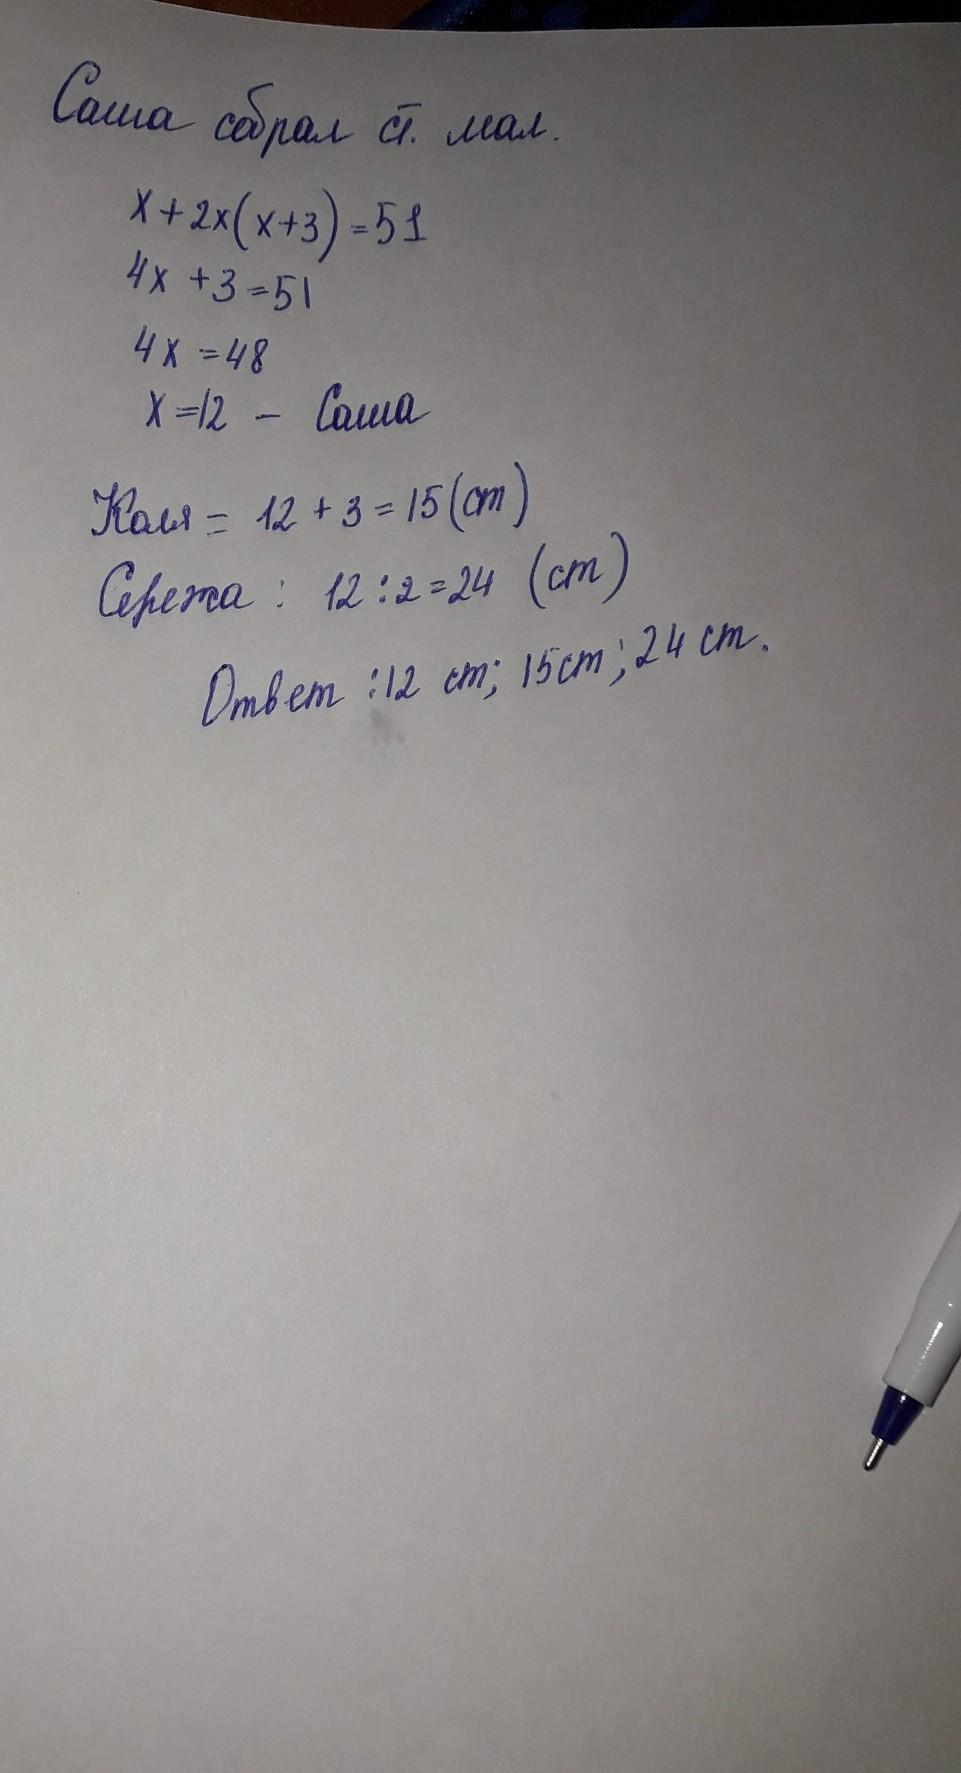 Саша собрал ст. мал.
x+2x(x+3)=51
4x +3=51
4x =48
x=12 - Саша
Коля = 12 + 3 = 15 (ст)
Сережа : 12 : 2 = 24 (ст)
Ответ :12 ст; 15ст; 24 ст.